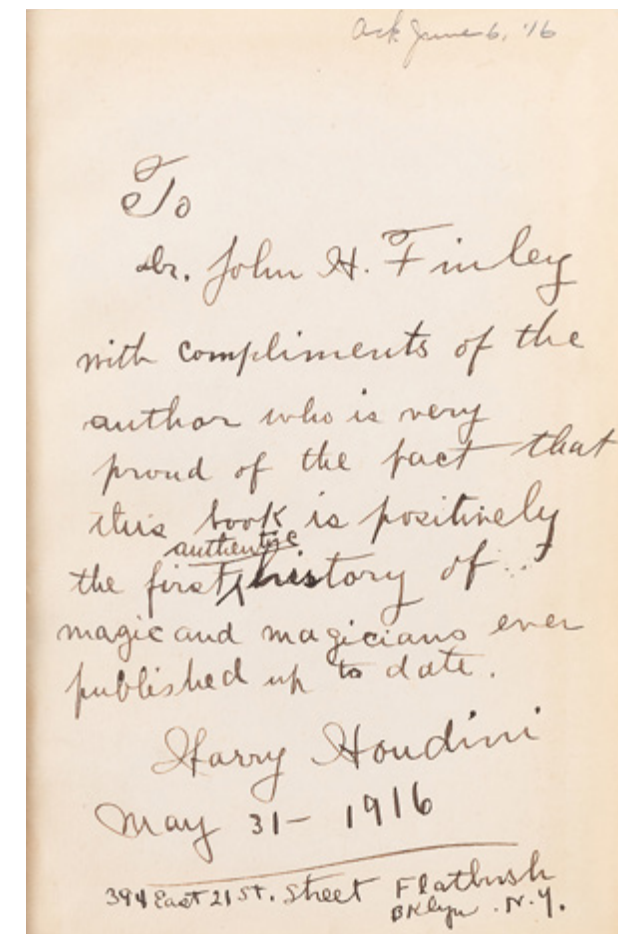 Ack June 6, '16
To
Dr. John H. Finley
with compliments of the
author who is very
proud of the fact that
this book is positively
authentic
the first history of
magic and magicians ever
published up to date.
Harry Houdini
May 31 - 1916
394 East 21 St. Street Flatbush
BKlyn. N.Y.